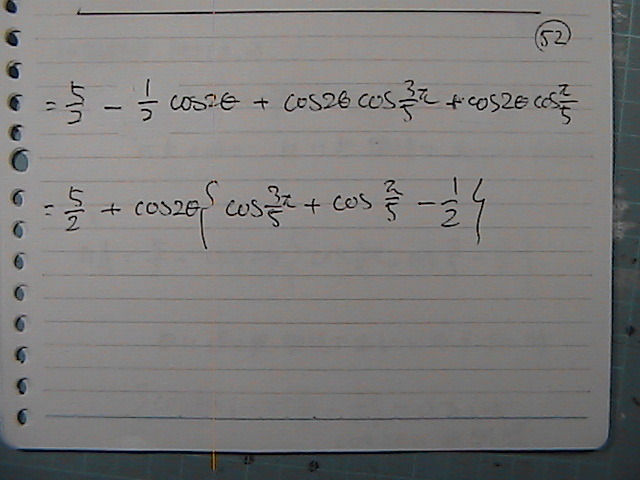 52
= 5/2 - 1/2 cos2θ + cos2θ cos 3/5 π + cos2θ cos π/5
= 5/2 + cos2θ { cos 3/5 π + cos π/5 - 1/2 }